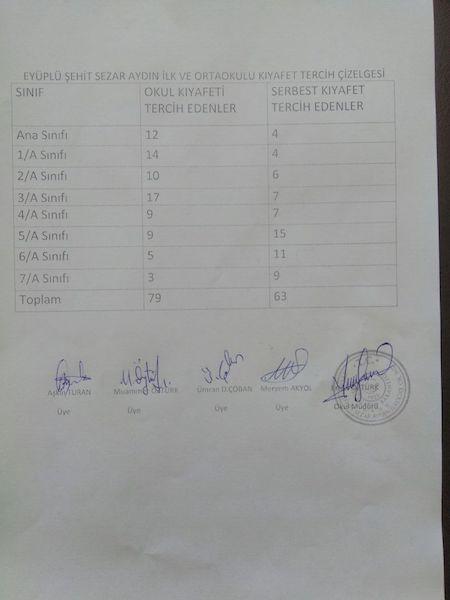 EYÜPLÜ ŞEHİT SEZAR AYDIN İLK VE ORTAOKULU KIYAFET TERCİH ÇİZELGESİ
SINIF OKUL KIYAFETİ TERCİH EDENLER SERBEST KIYAFET TERCİH EDENLER
Ana Sınıfı 12 4
1/A Sınıfı 14 4
2/A Sınıfı 10 6
3/A Sınıfı 17 7
4/A Sınıfı 9 7
5/A Sınıfı 9 15
6/A Sınıfı 5 11
7/A Sınıfı 3 9
Toplam 79 63
TURAN ÖZTÜRK Ümran D.ÇOBAN Meryem AKYOL
Üye Üye Üye Üye Okul Müdürü